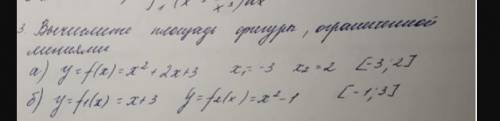 3. Вычислите площадь фигуры, ограниченной
линиями
а) y=f(x)=x²+2x+3 x₁=-3 x₂=2 [-3;2]
б) y=f₁(x)=x+3 y=f₂(x)=x²-1 [-1;3]